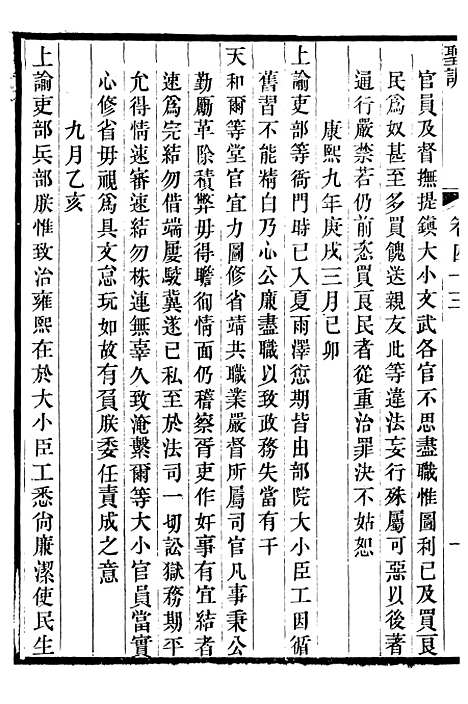 聖訓
卷四十三
一
官員及督撫提鎮大小文武各官不思盡職惟圖利己及買良
民為奴甚至多買餽送親友此等違法妄行殊屬可惡以後著
通行嚴禁若仍前恣買良民者從重治罪決不姑恕
康熙九年庚戌三月己卯
上諭吏部等衙門時已入夏雨澤愆期皆由部院大小臣工因循
舊習不能精白乃心公廉盡職以致政務失當有干
天和爾等堂官宜力圖修省靖共職業嚴督所屬司官凡事秉公
勤勵革除積弊毋得瞻徇情面仍稽察胥吏作奸事有宜結者
速為完結勿借端屢駁冀遂已私至於法司一切訟獄務期平
允得情速審速結勿株連無辜久致淹繫爾等大小官員當實
心修省毋視為具文怠玩如故有負朕委任責成之意
九月乙亥
上諭吏部兵部朕惟致治雍熙在於大小臣工悉尚廉潔使民生